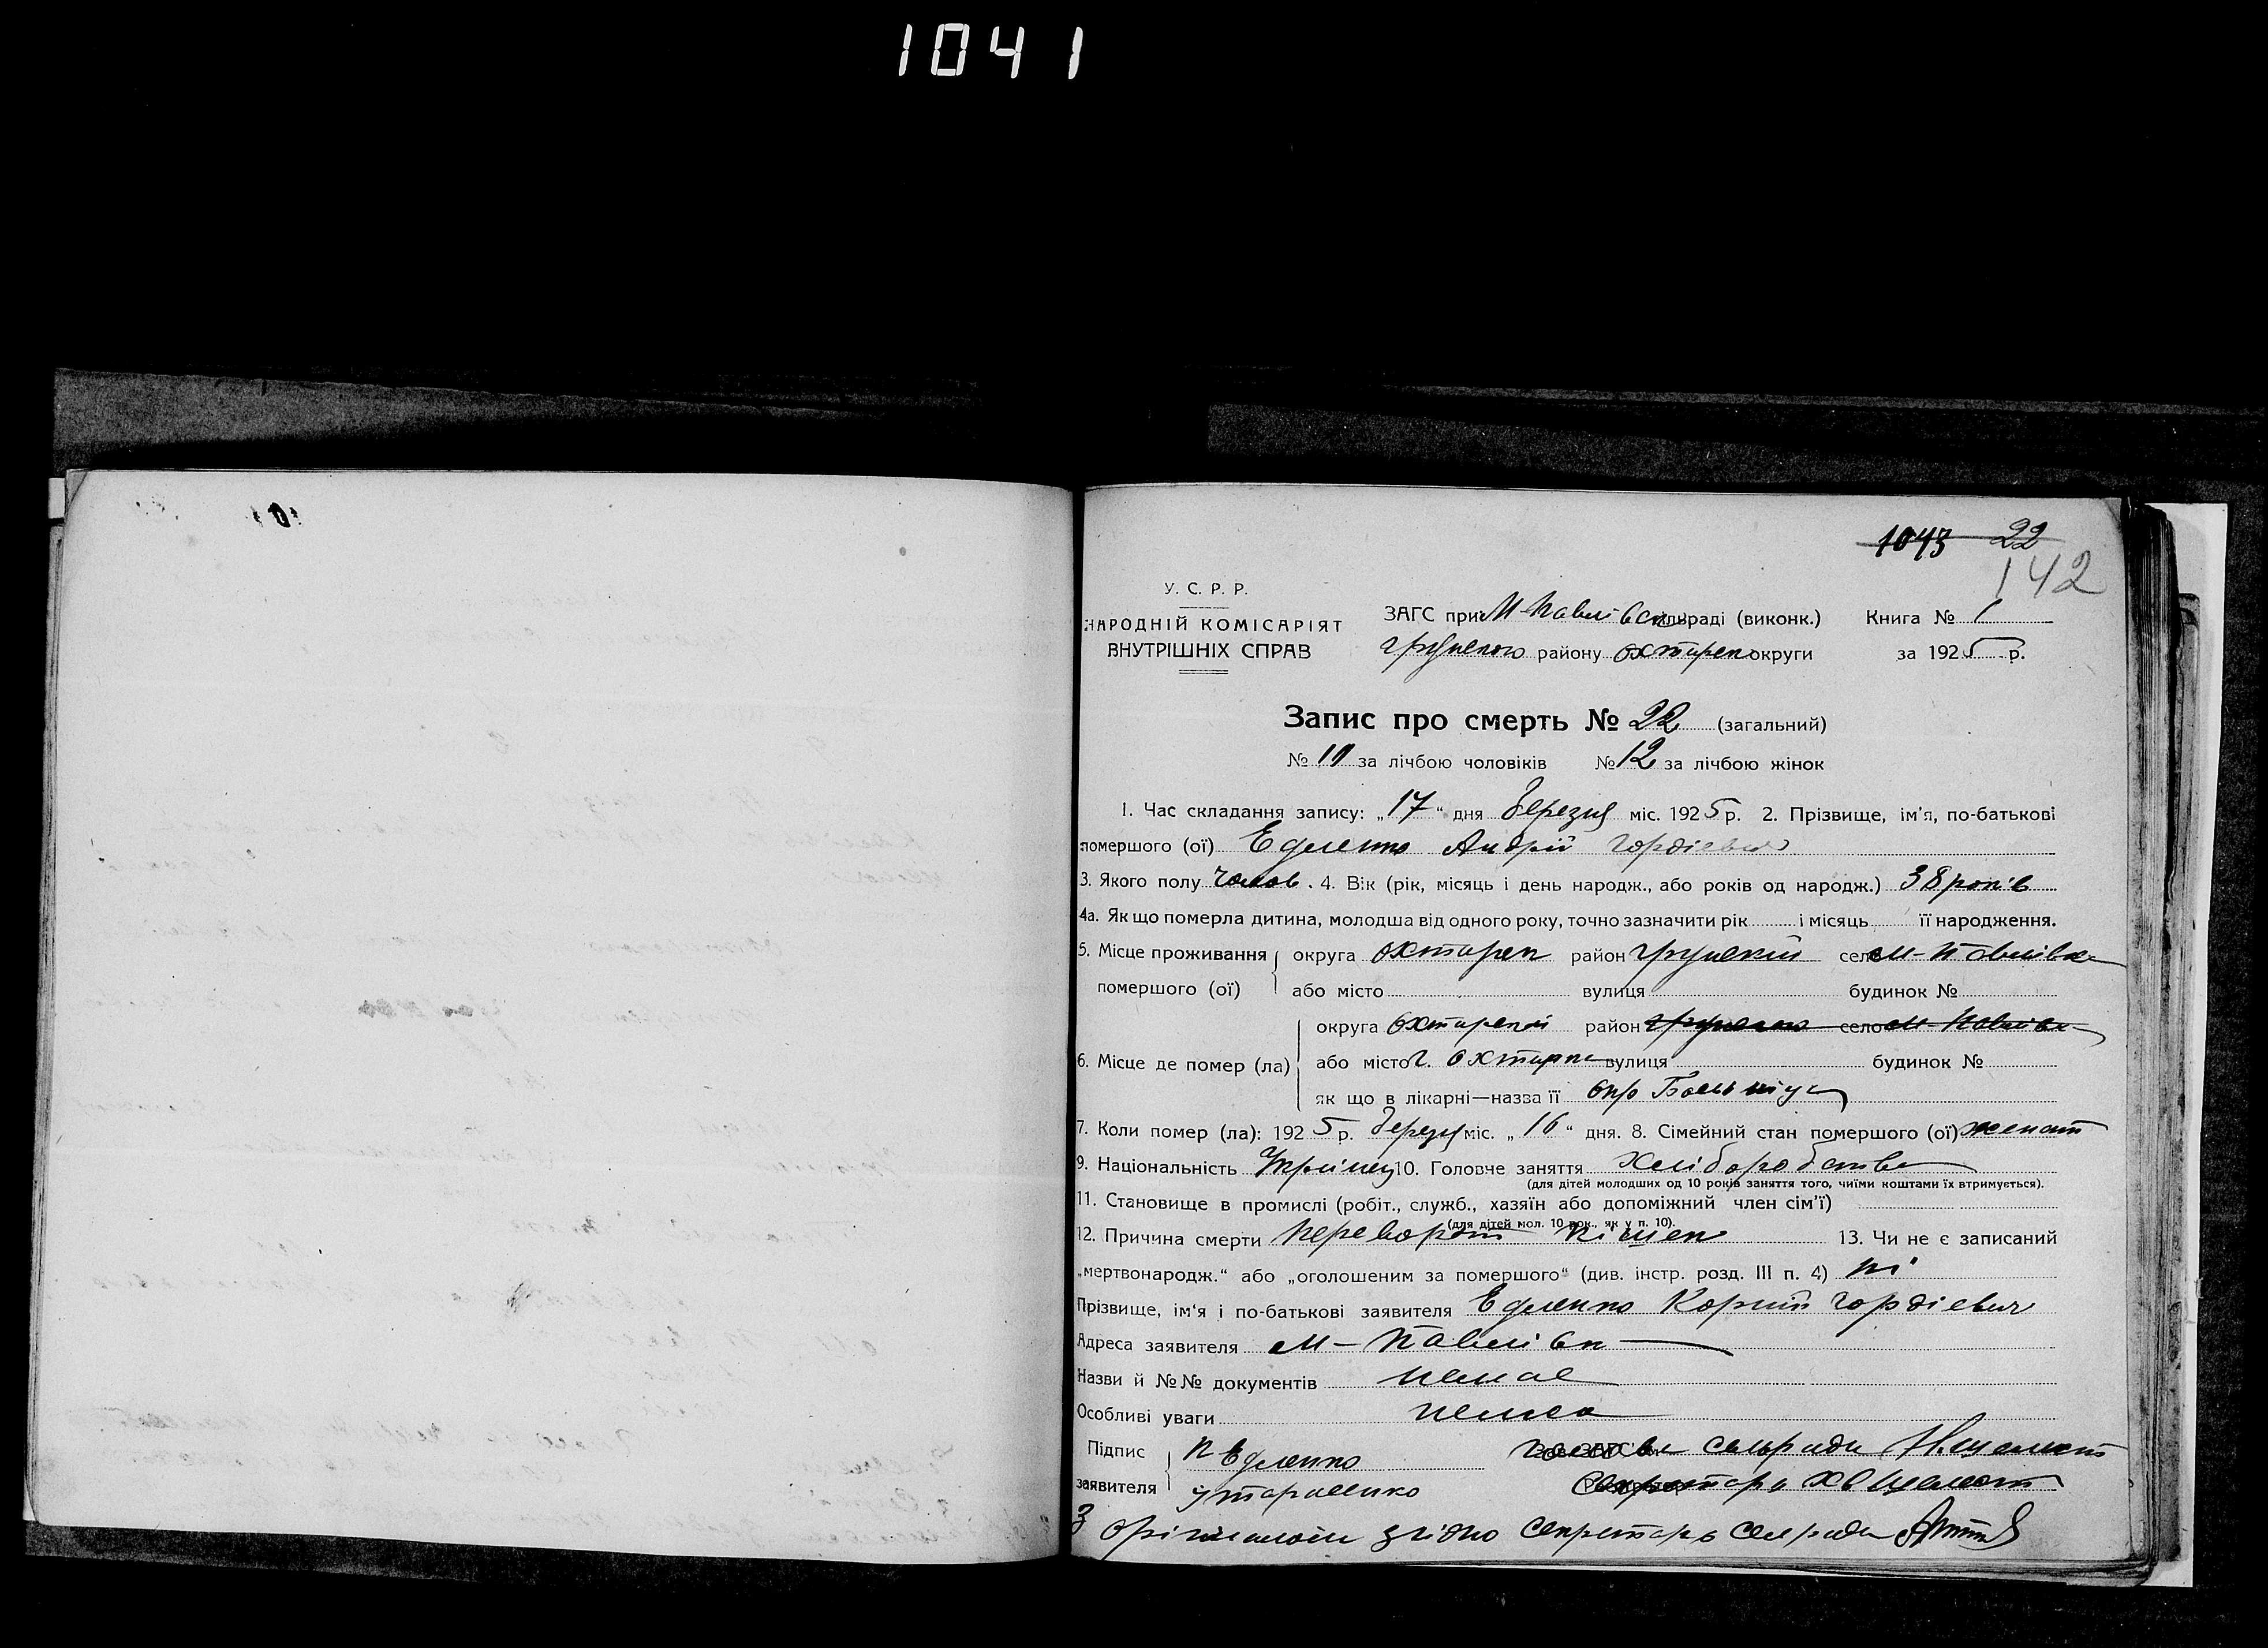 1041
1043 22
142
У. С. Р. Р.
НАРОДНІЙ КОМІСАРІЯТ
ВНУТРІШНІХ СПРАВ
ЗАГС при М-Павлівськ сільраді (виконк.) Книга № 1
грунского району охтирск округи за 1925 р.
Запис про смерть № 22 (загальний)
№ за лічбою чоловіків № 12 за лічбою жінок
1. Час складання запису: „17“ дня березня міс. 1925 р. 2. Прізвище, ім'я, по-батькові
помершого (ої) Андрій Гордієвич
3. Якого полу чолов. 4. Вік (рік, місяць і день народж., або років од народж.) 38 років
4а. Як що померла дитина, молодша від одного року, точно зазначити рік і місяць її народження.
5. Місце проживання округа охтирск район грунский село М-Павлівка
помершого (ої) або місто вулиця будинок №
округа охтирской район грунского село М-Павлівка
6. Місце де помер (ла) або місто г. охтирка вулиця будинок №
як що в лікарні—назва її окр Больниця
7. Коли помер (ла): 1925 р. березня міс. „16“ дня. 8. Сімейний стан помершого (ої) женат
9. Національність Украінец 10. Головче заняття Хліборобство
(для дітей молодших од 10 років заняття того, чиїми коштами їх втримується).
11. Становище в промислі (робіт., служб., хазяїн або допоміжний член сім'ї)
(для дітей мол. 10 рок., як у п. 10).
12. Причина смерти переворот кішек 13. Чи не є записаний
„мертвонародж.“ або „оголошеним за помершого“ (див. інстр. розд. III п. 4) ні
Прізвище, ім'я і по-батькові заявителя Корній Гордієвич
Адреса заявителя М-Павлівк
Назви й №№ документів немає
Особливі уваги нема
Підпис голови сельради
заявителя секретарь
З орігіналом згідно секретарь сельради